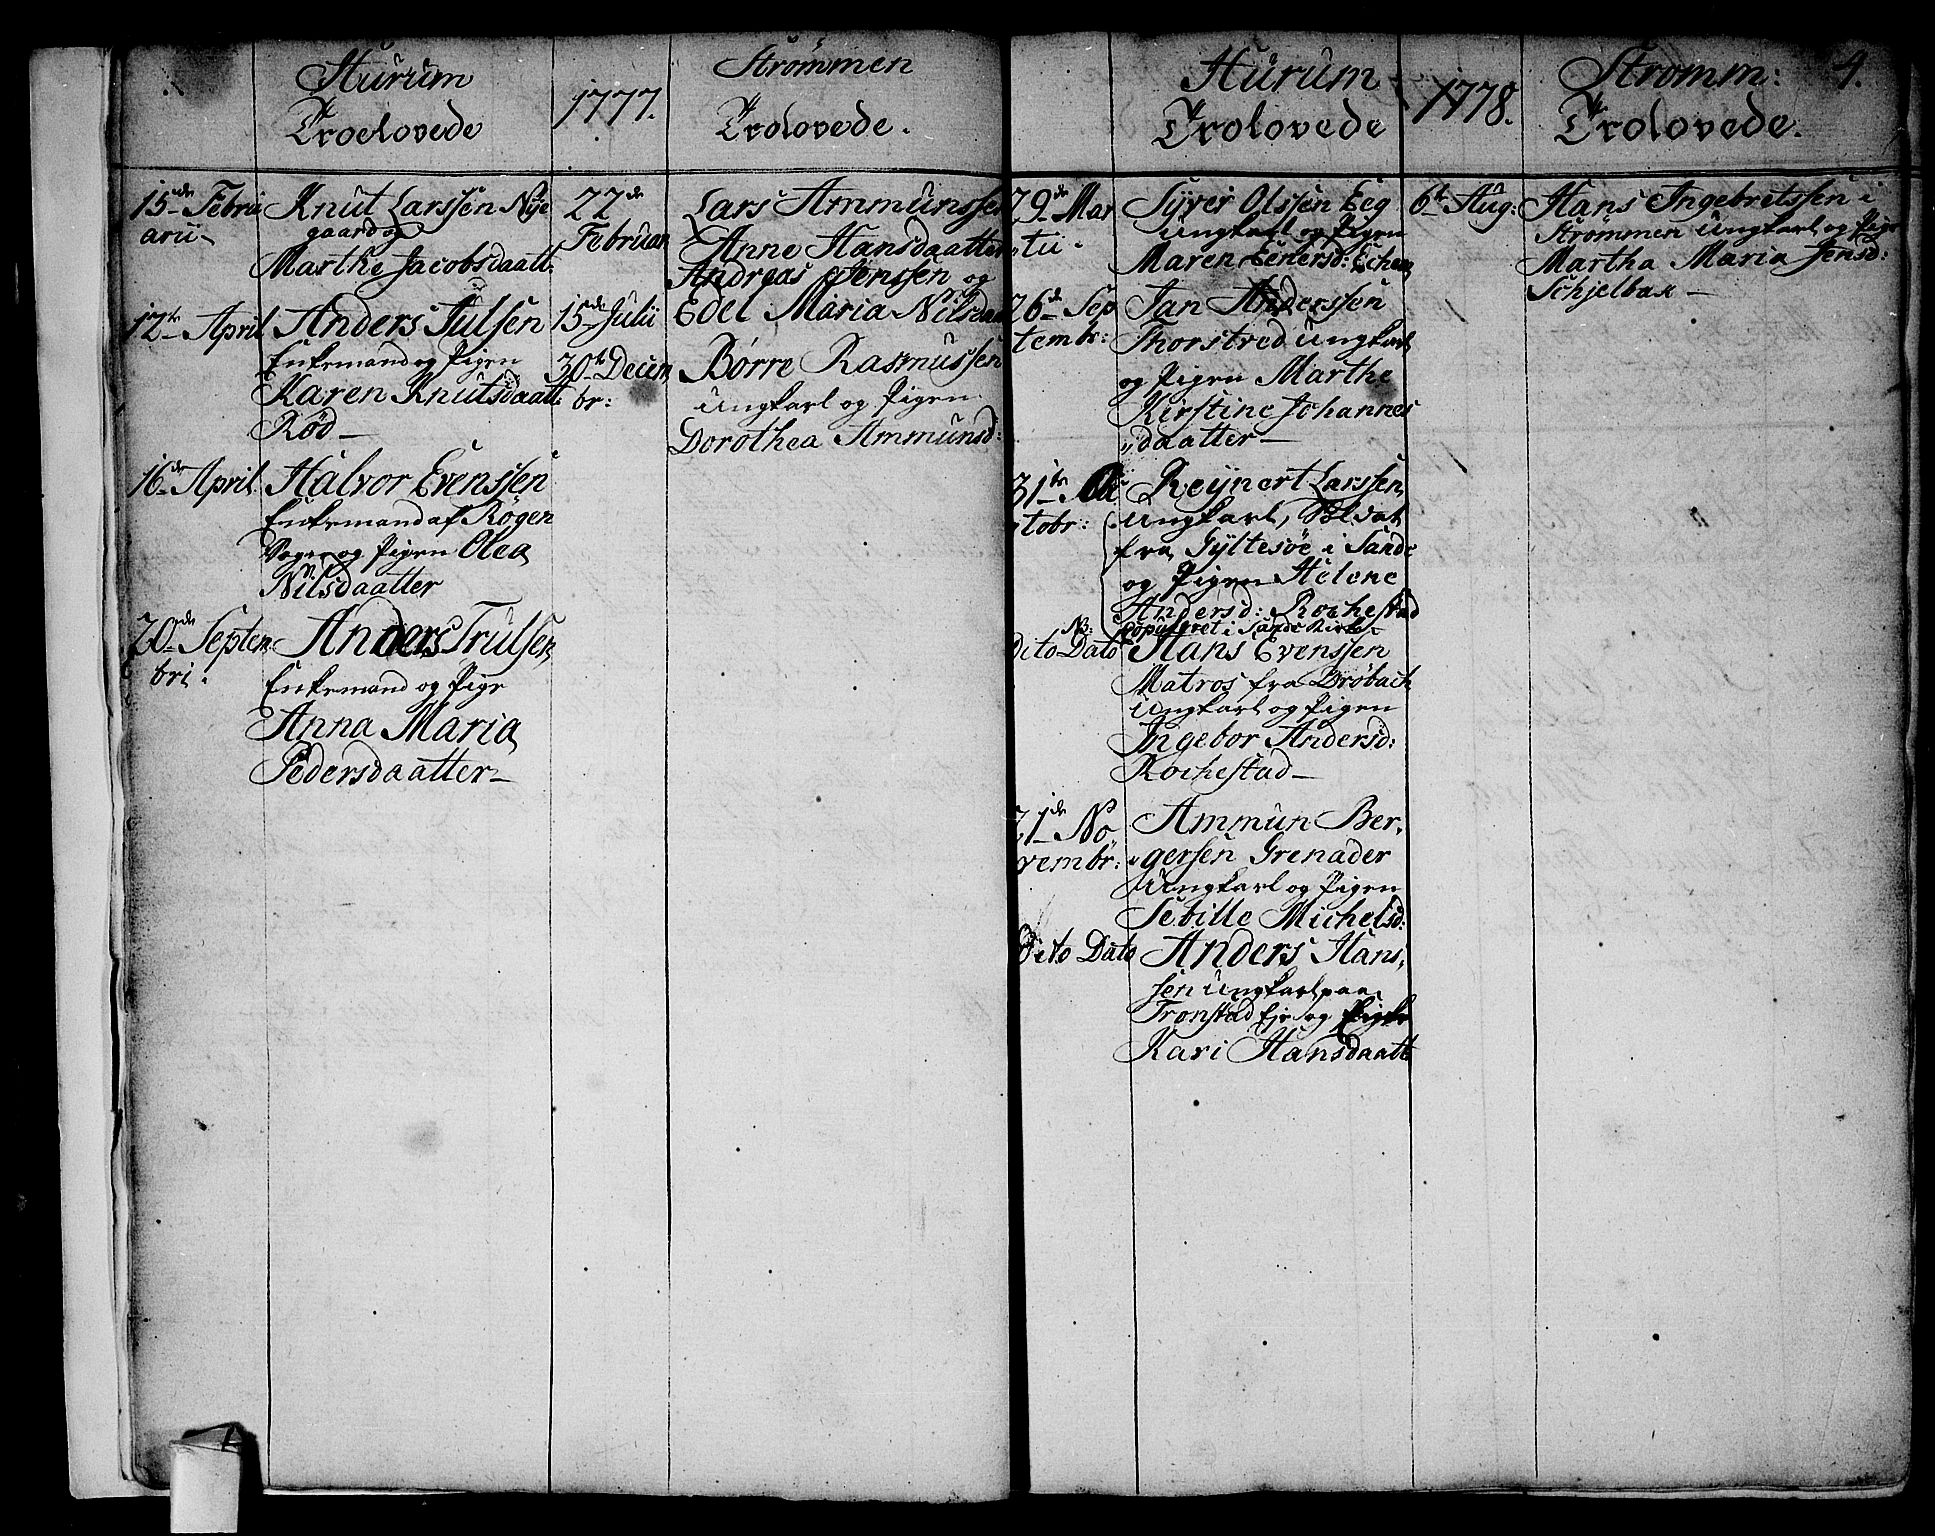 Hurum
Troelovede
15de Febru
arii
Knut Larssen Nye
gaard og
Marthe Jacobsdaatt:
12te April
Anders Julsen
Enkemand og Pigen
Karen Knutsdaatt:
Rød
16de April
Halvor Evenssen
Enkemand af Røgen
Sogn og Pigen Olea
Nilsdaatter
20de Septem
bri.
Anders Trulsen
Enkemand og Pige
Anna Maria
Pedersdaatter
1777.
Strømmen
Trolovede.
22de
Februari
Lars Ammunssen
Anne Hansdaatter
15de Julii
Andreas Jenssen og
Edel Maria Nilsdaa
30te Decem
br:
Børre Rasmussen
Ungkarl og Pigen
Dorothea Ammunsd:
Hurum
Trolovede
29de Mar
tii
Syver Olssen Eeg
Ungkarl og Pigen
Maren Eenersd: Echen
26de Sep
tembr:
Jan Anderssen
Thorstred Ungkarl
og Pigen Marthe
Kirstine Johannes
daatter
31te Oc
tobr:
Reynert Larssen
Ungkarl, Soldat
fra Gyltesøe i Sande
og Pigen Helene
Andersd: Rochestad
NB: copuleret i Sande Kirke
Dito Dato
Hans Evenssen
Matros fra Drøbach
Ungkarl og Pigen
Ingebor Andersd:
Rochestad
21de No
vembr:
Ammun Ber
gersen Grenader
Ungkarl og Pigen
Sebille Michelsd:
Dito Dato
Anders Hans
sen Ungkarl paa
Tronstad Eje og Pige
Kari Hansdaatt
1778.
Strømm:
Trolovede.
4.
6te Aug:
Hans Ingebretssen i
Strømmen Ungkarl og Pige
Martha Maria Jensd:
Schjelbak